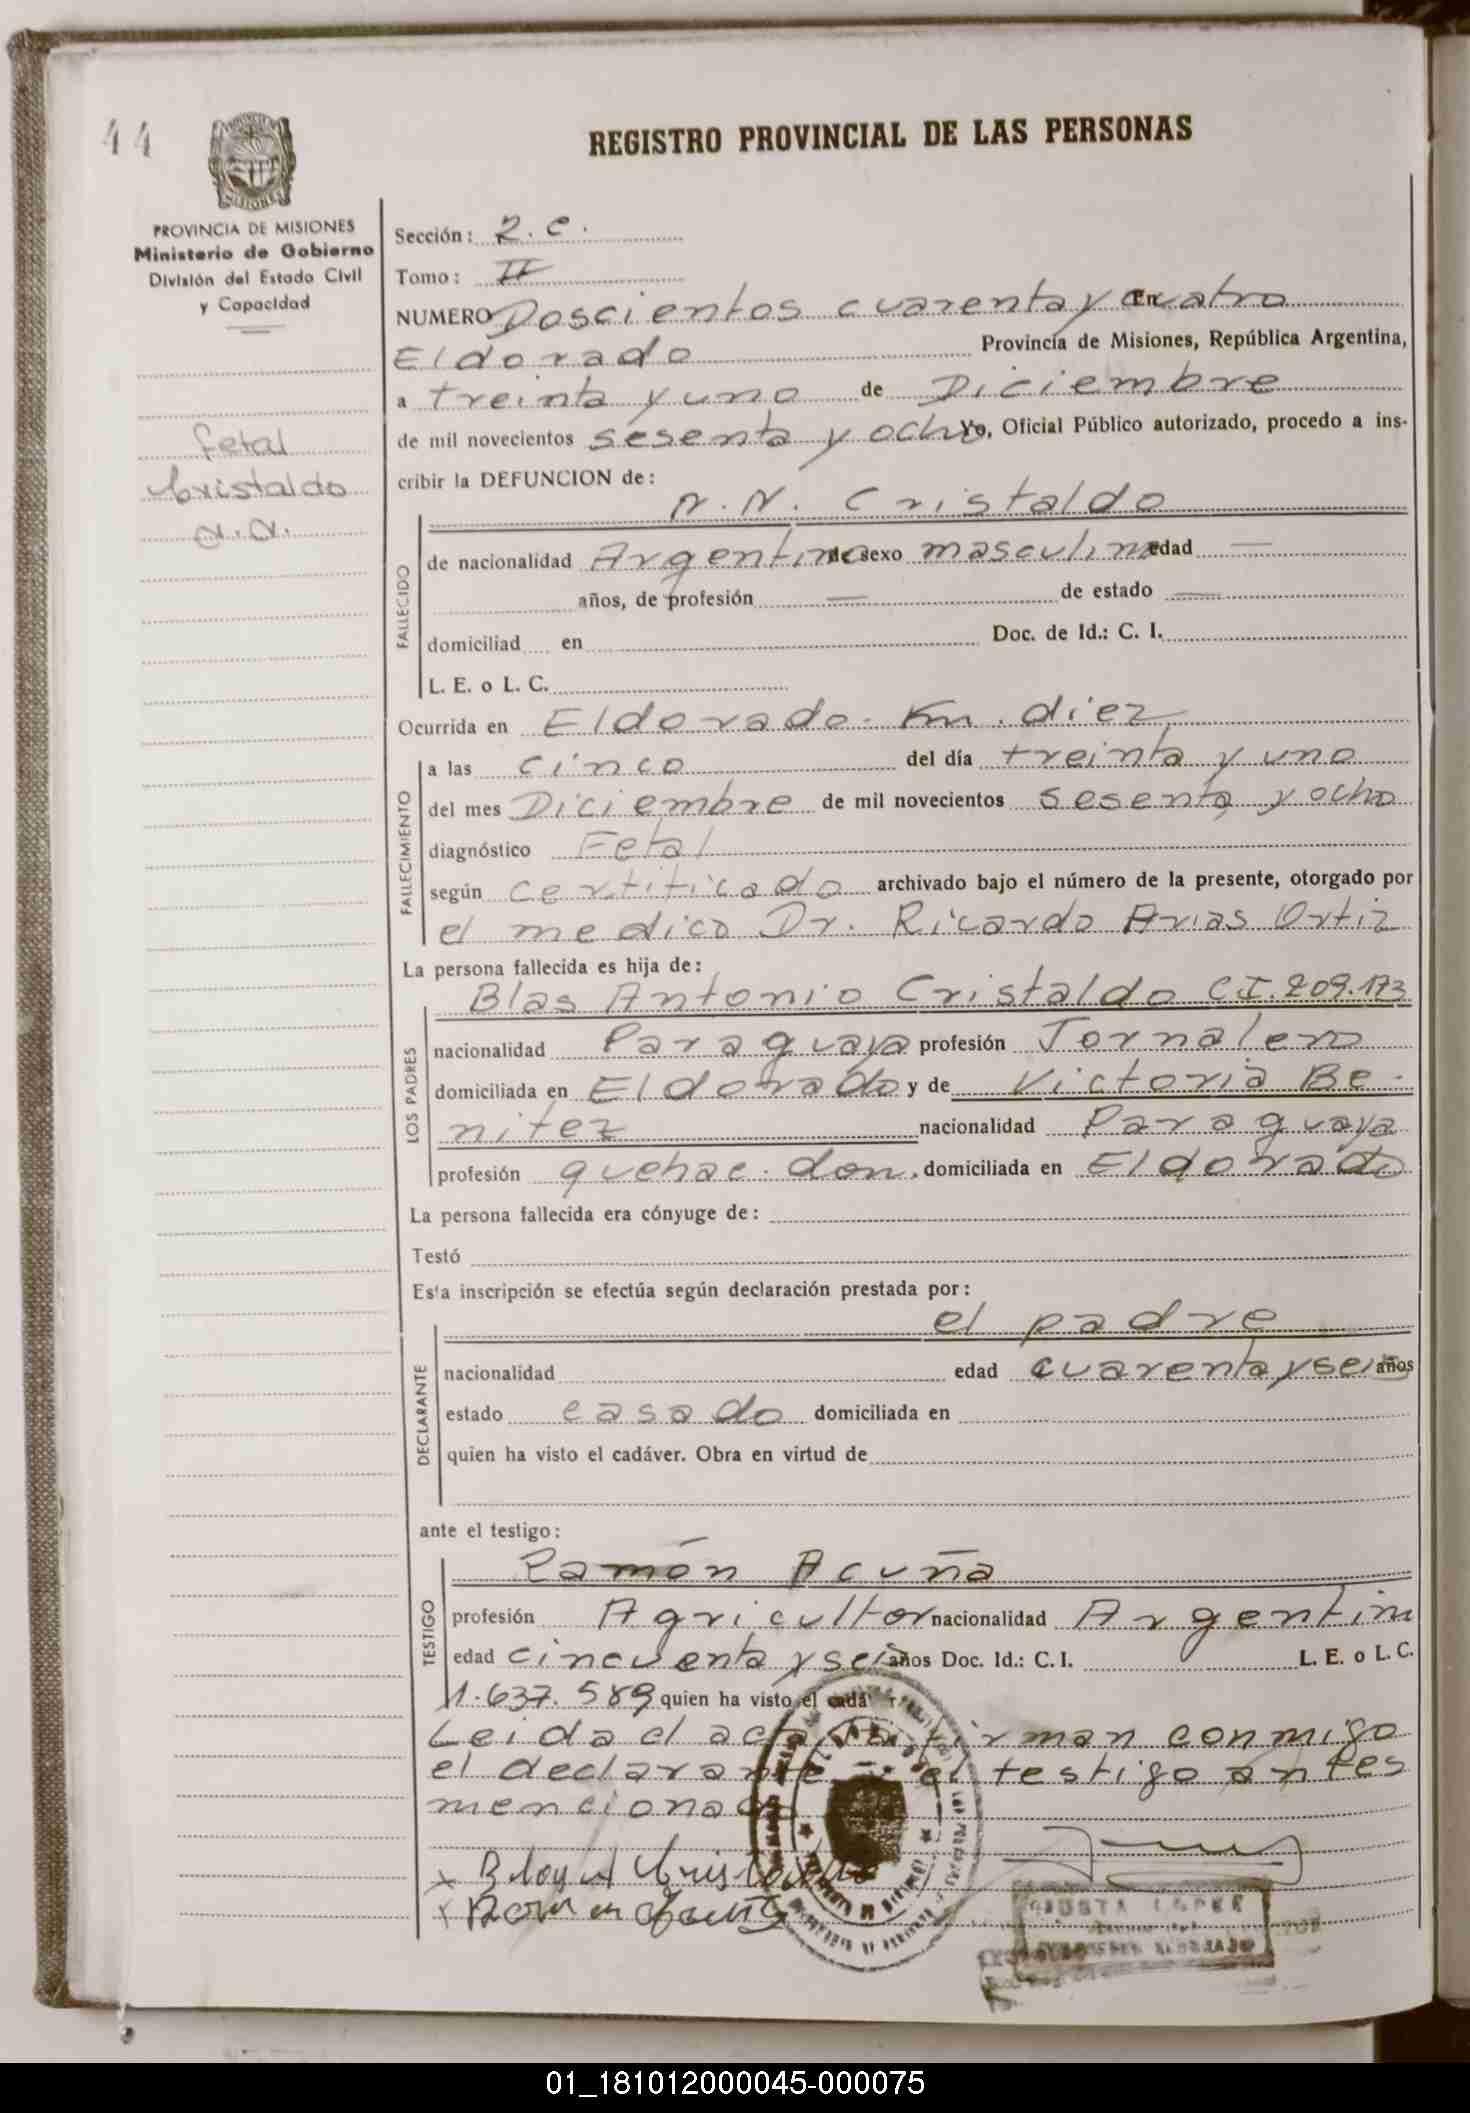 44
REGISTRO PROVINCIAL DE LAS PERSONAS
PROVINCIA DE MISIONES
Ministerio de Gobierno
División del Estado Civil
y Capacidad
fetal
Cristaldo
N.N.
Sección: 2. c.
Tomo: II
NUMERO Doscientos cuarenta y cuatro En
Eldorado Provincia de Misiones, República Argentina,
a treinta y uno de Diciembre
de mil novecientos sesenta y ocho Yo, Oficial Público autorizado, procedo a ins-
cribir la DEFUNCION de:
N. N. Cristaldo
FALLECIDO
de nacionalidad Argentino de sexo masculino edad —
años, de profesión — de estado —
domiciliad en Doc. de Id.: C. I.
L. E. o L. C.
Ocurrida en Eldorado. Km. diez
FALLECIMIENTO
a las cinco del día treinta y uno
del mes Diciembre de mil novecientos sesenta y ocho
diagnóstico Fetal
según certificado archivado bajo el número de la presente, otorgado por
el medico Dr. Ricardo Arias Ortiz
La persona fallecida es hija de:
LOS PADRES
Blas Antonio Cristaldo C.I. 209.173
nacionalidad Paraguaya profesión Jornalero
domiciliada en Eldorado y de Victoria Be-
nitez nacionalidad Paraguaya
profesión quehac. dom. domiciliada en Eldorado
La persona fallecida era cónyuge de:
Testó
Esta inscripción se efectúa según declaración prestada por:
el padre
DECLARANTE
nacionalidad edad cuarenta y seis años
estado casado domiciliada en
quien ha visto el cadáver. Obra en virtud de
ante el testigo:
Ramón Acuña
TESTIGO
profesión Agricultor nacionalidad Argentin
edad cincuenta y seis años Doc. Id.: C. I. L. E. o L. C.
1.637.589 quien ha visto el cadá
Leida el acta, la firman conmigo
el declarante y el testigo antes
mencionado
x Blas A Cristaldo
x Ramon Acuña
01_181012000045-000075